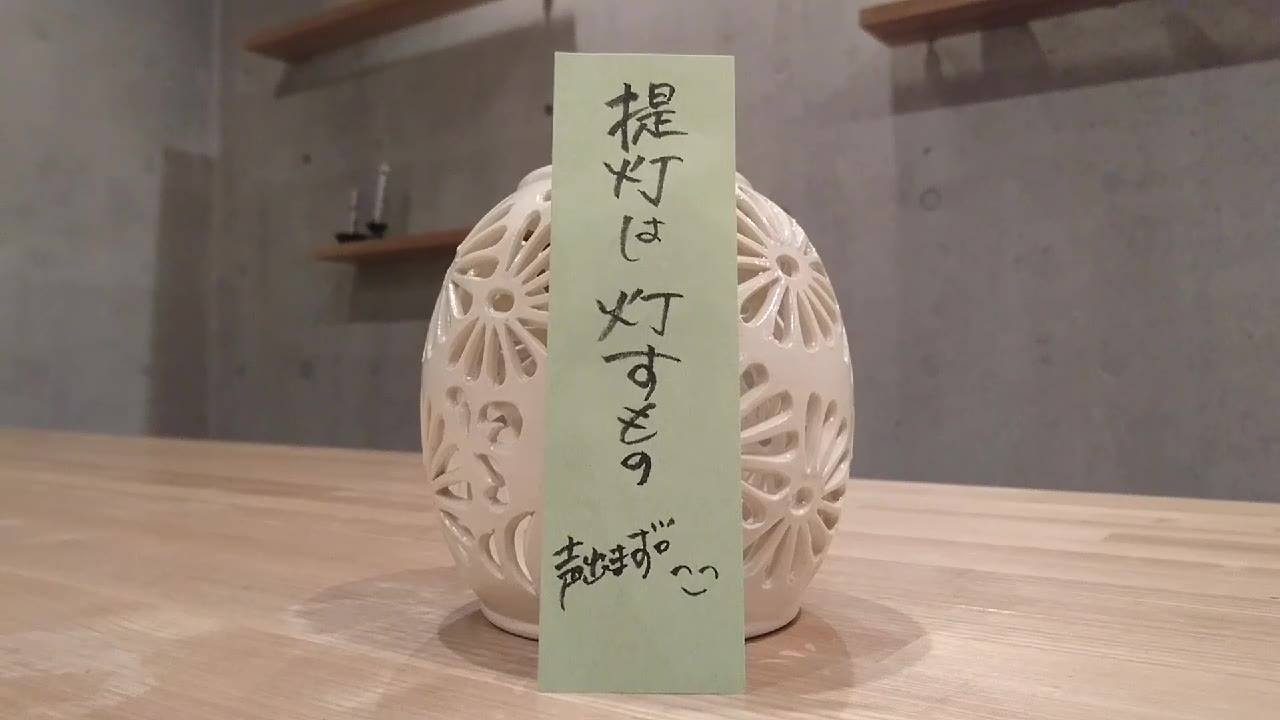 提灯は 灯すもの
声出ます。